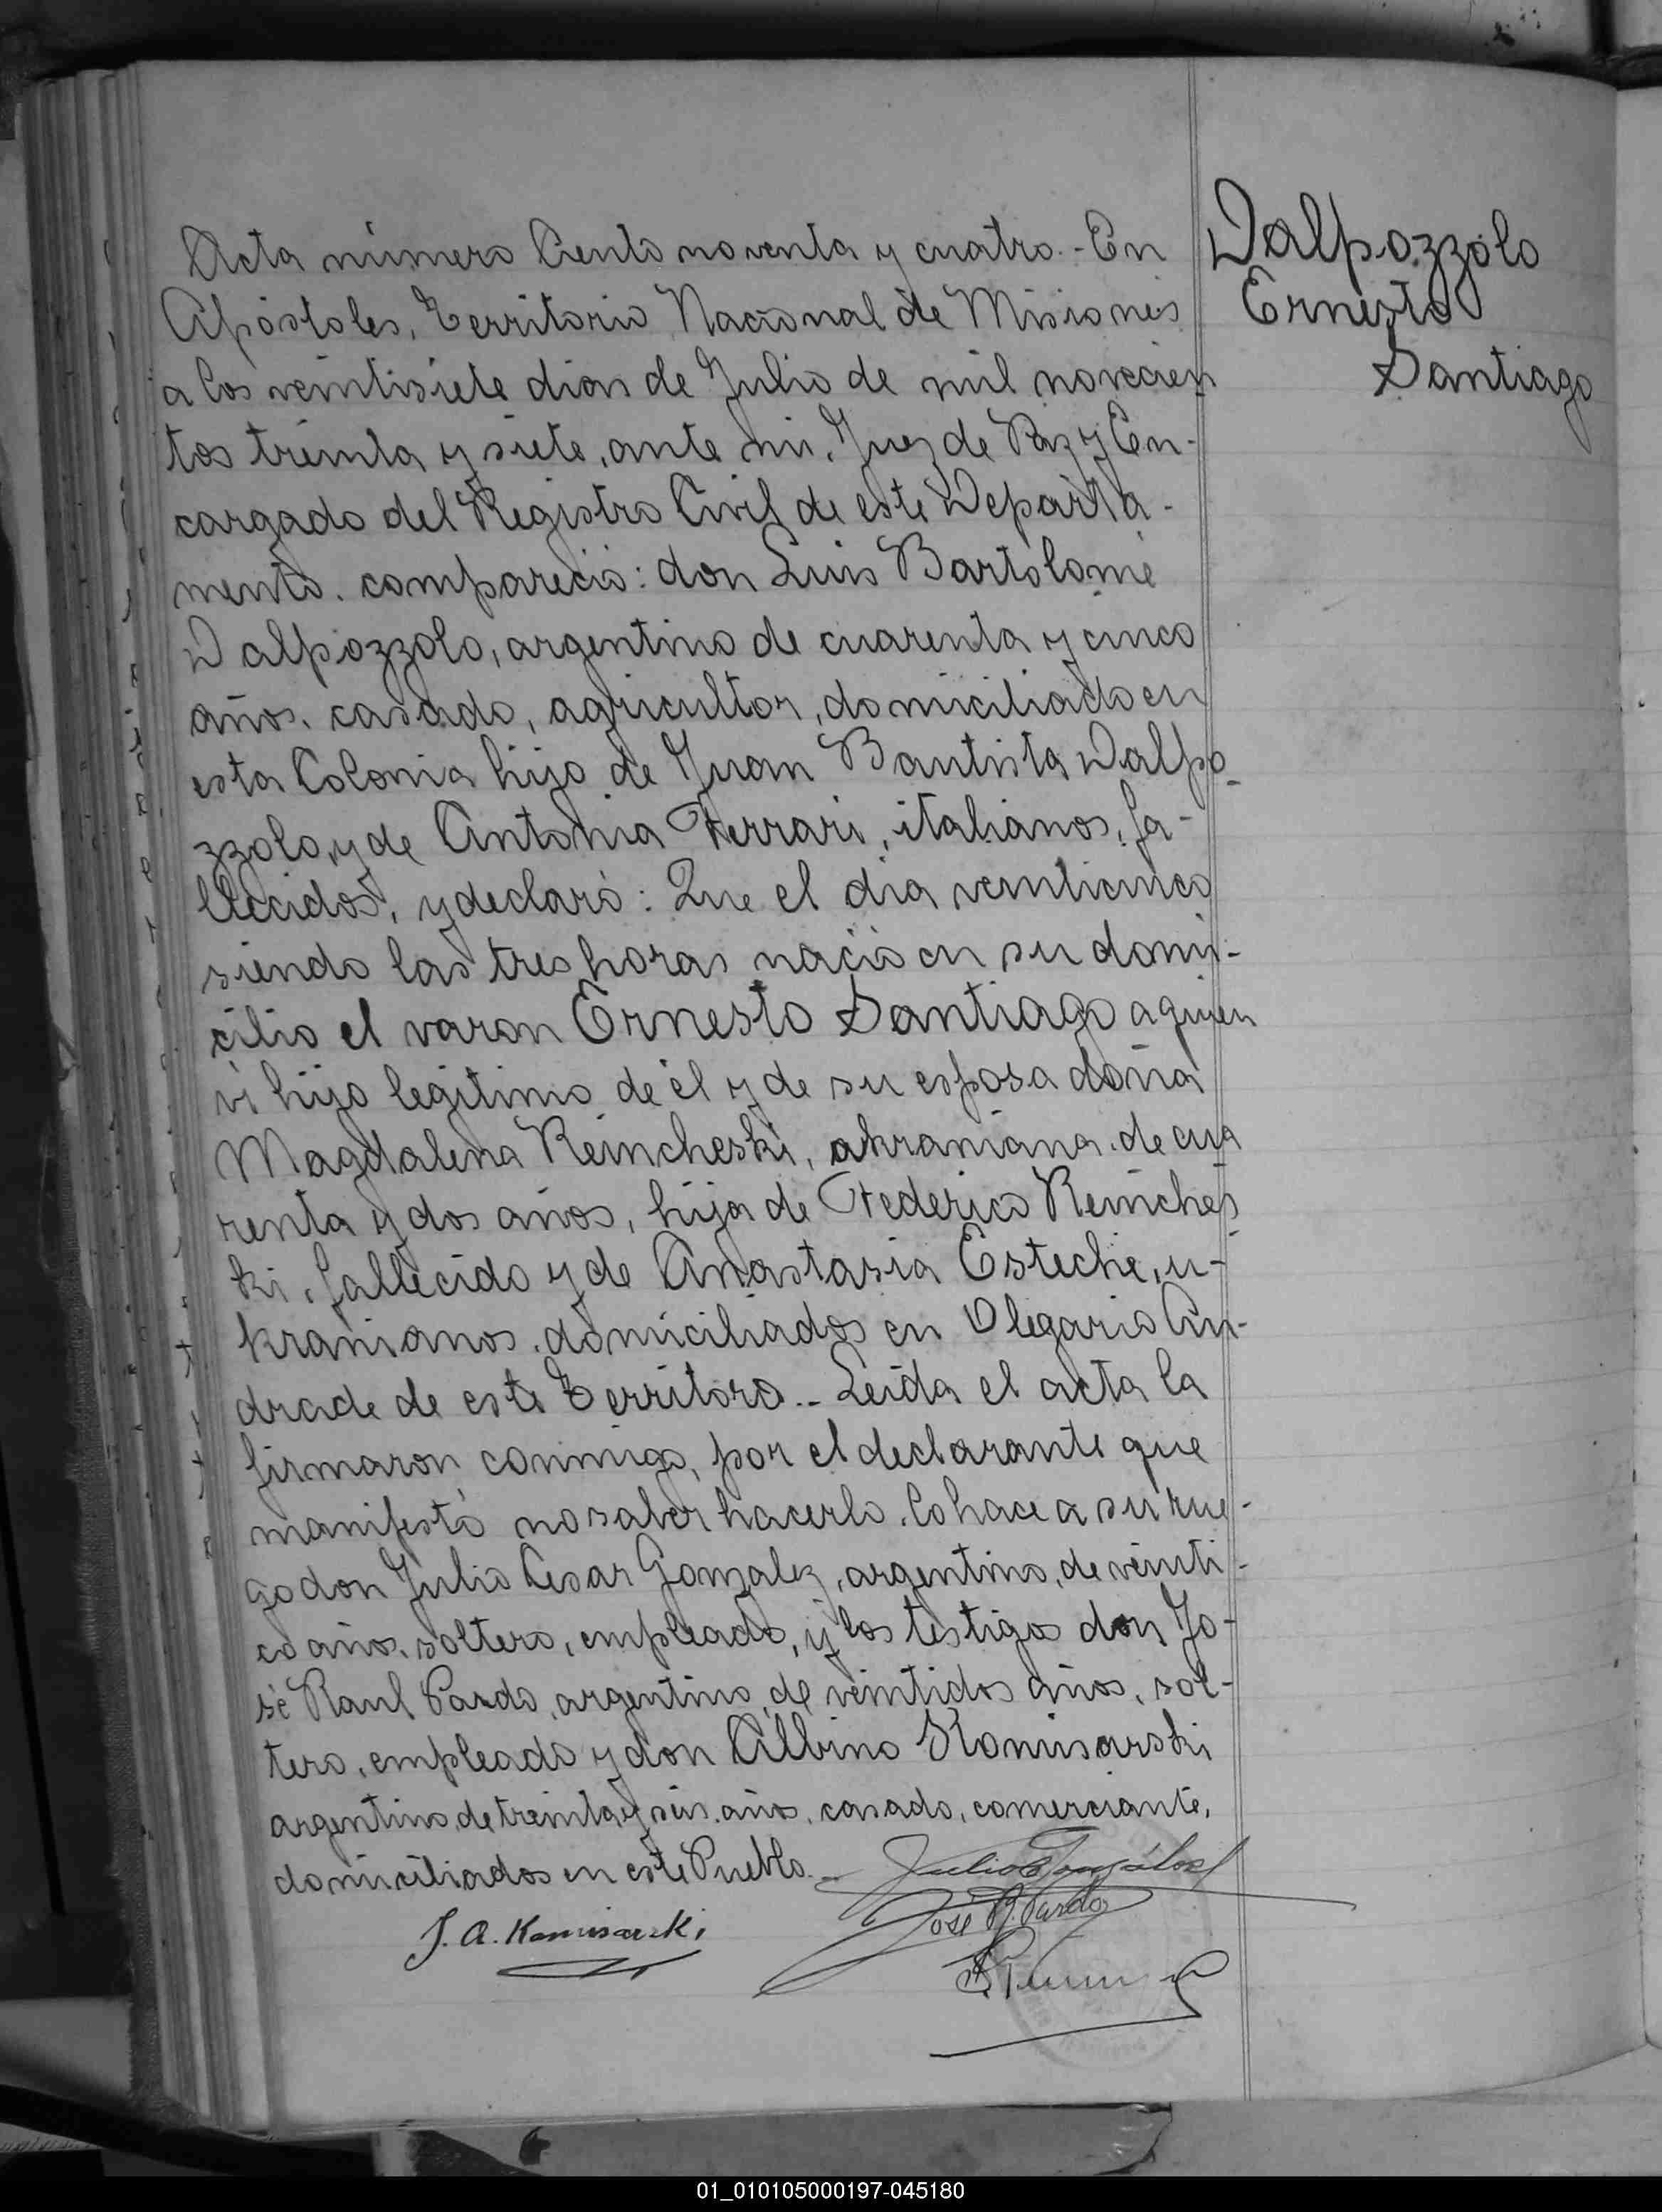 Acta número Ciento noventa y cuatro.- En
Apóstoles, Territorio Nacional de Misiones
a los veintisiete dias de Julio de mil novecien
tos treinta y siete, ante mi, Juez de Paz y En-
cargado del Registro Civil de este Departa-
mento. compareció: don Luis Bartolomé
Dalpozzolo, argentino de cuarenta y cinco
años. casado, agricultor, domiciliado en
esta Colonia hijo de Juan Bautista Dalpo-
zzolo, y de Antonia Ferrari, italianos, fa-
llecidos, y declaró: Que el dia veinticinco
siendo las tres horas nació en su domi-
cilio el varon Ernesto Santiago a quien
vi hijo legitimo de él y de su esposa doña
Magdalena Reincheski, akraniana. de cua
renta y dos años, hija de Federico Reinches
ki, fallecido y de Anastasia Esteche, u-
kranianos. domiciliados en Olegario An-
drade de este Territoro.- Leida el acta la
firmaron conmigo, por el declarante que
manifestó no saber hacerlo. lo hace a su rue-
go don Julio Cesar Gonzalez, argentino, de veinti-
co años. soltero, empleado, y los testigos don Jo-
sé Raul Pardo, argentino de veintidos años, sol-
tero, empleado y don Albino Komisarski
argentino, de treinta y seis. años. casado, comerciante,
domiciliados en este Pueblo.-
Julio C González
José R. Pardo
J. A. Komisarski
Dalpozzolo
Ernesto
Santiago
01_010105000197-045180